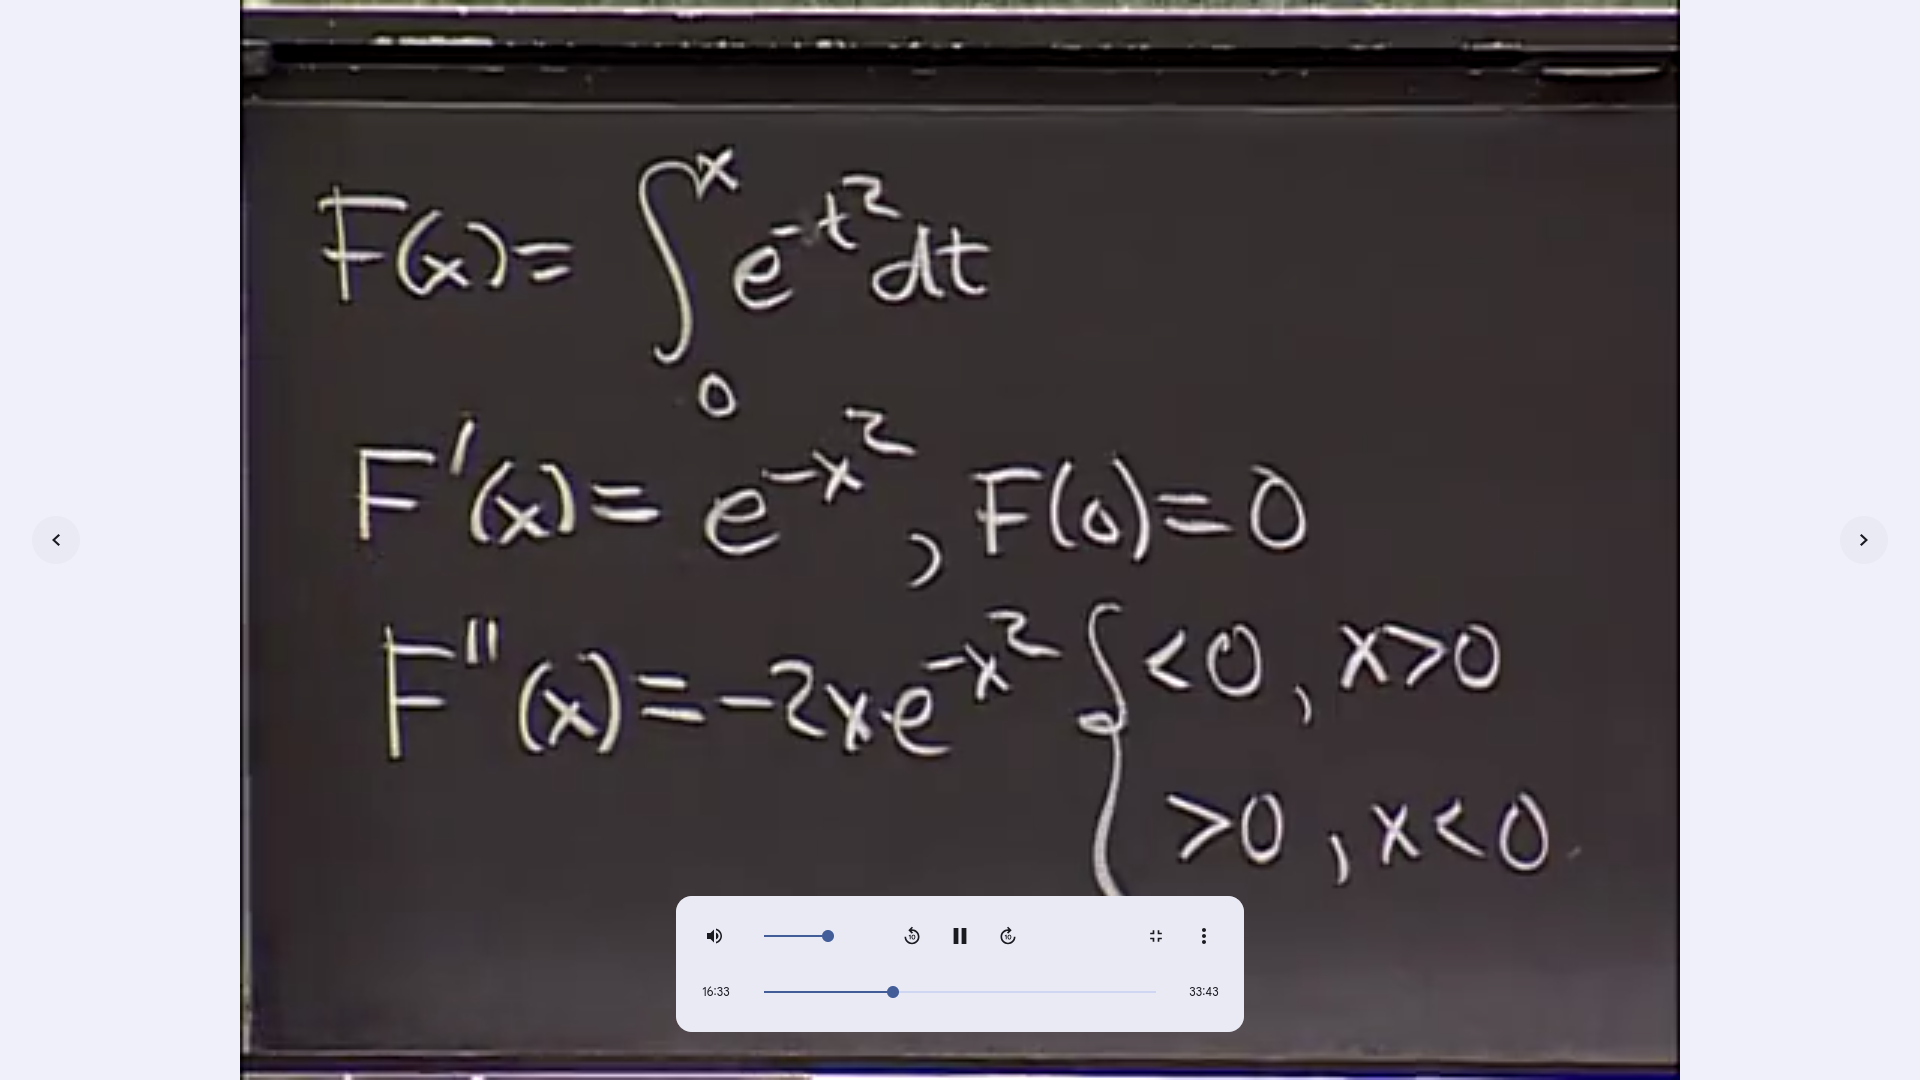 F(x) = ∫₀ˣ e^{-t²} dt
F'(x) = e^{-x²}, F(0) = 0
F''(x) = -2xe^{-x²} { <0, x>0
>0, x<0
10 10
16:33 33:43